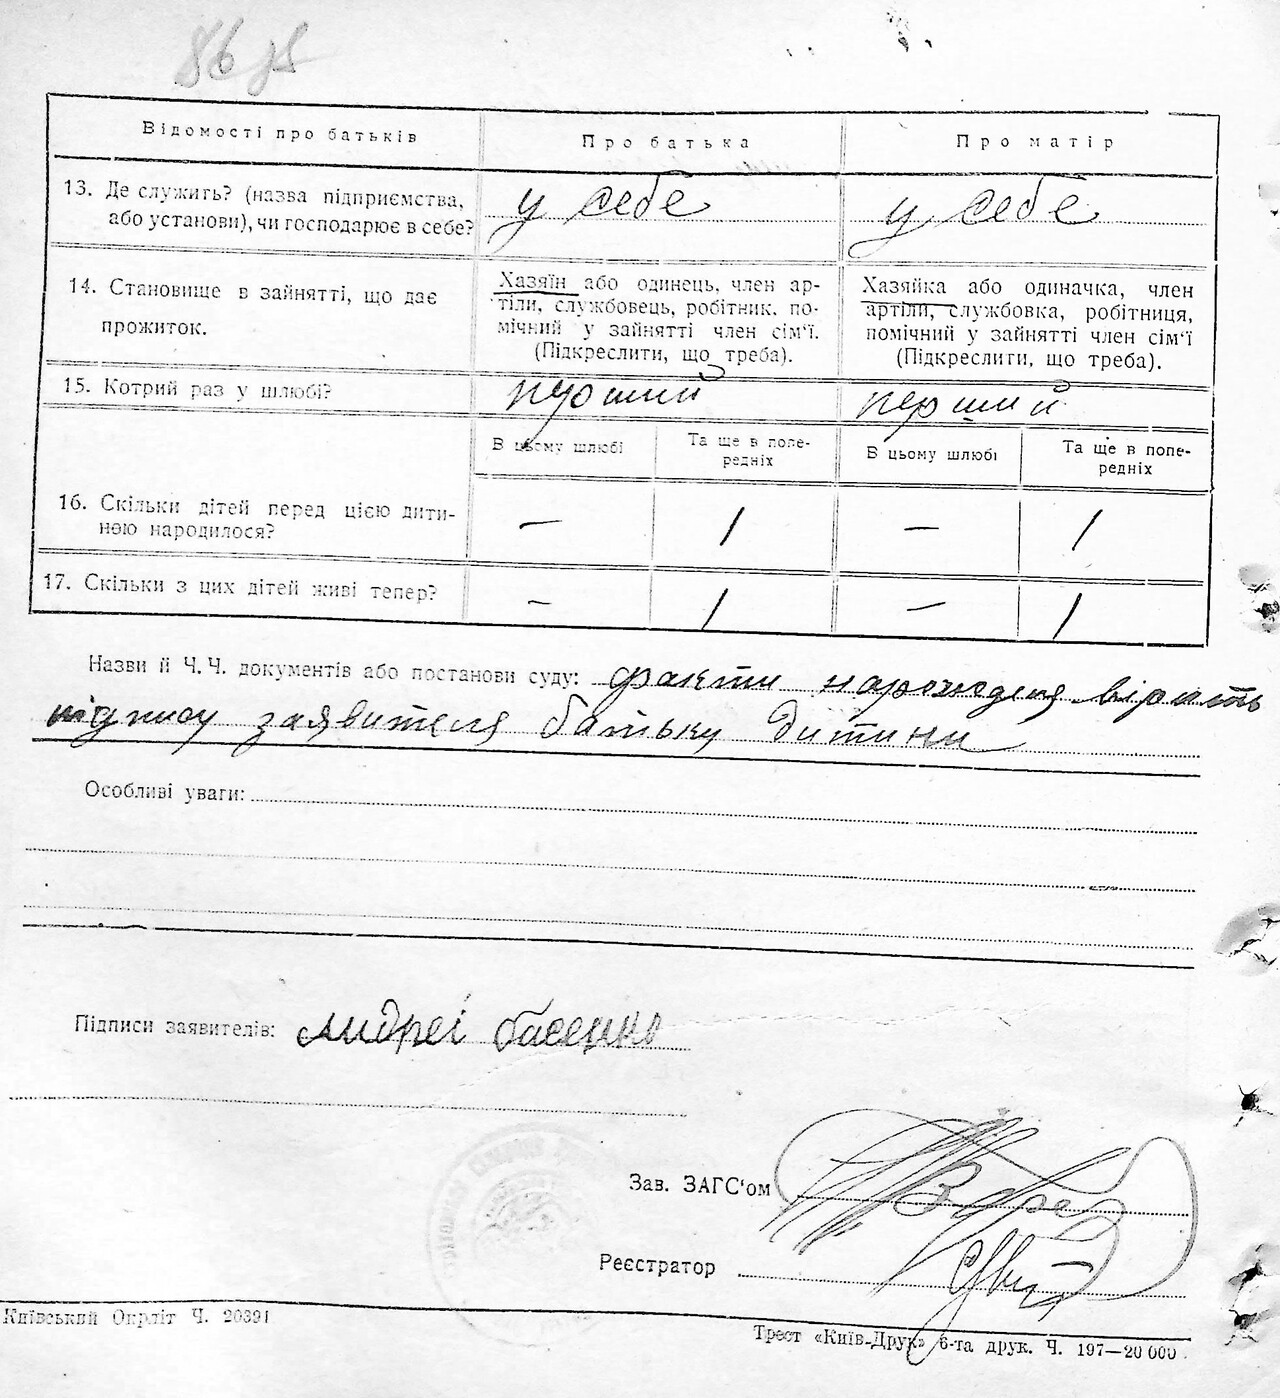 86 зв
Відомості про батьків
Про батька
Про матір
13. Де служить? (назва підприємства, або установи), чи господарює в себе?
у себе
у себе
14. Становище в зайнятті, що дає прожиток.
Хазяїн або одинець, член ар-
тіли, службовець, робітник, по-
мічний у зайнятті член сім'ї.
(Підкреслити, що треба).
Хазяйка або одиначка, член
артіли, службовка, робітниця,
помічний у зайнятті член сім'ї
(Підкреслити, що треба).
15. Котрий раз у шлюбі?
перший
перший
В цьому шлюбі
Та ще в попе-
редніх
В цьому шлюбі
Та ще в попе-
редніх
16. Скільки дітей перед цією дити-
ною народилося?
— 1 — 1
17. Скільки з цих дітей живі тепер?
— 1 — 1
Назви й Ч.Ч. документів або постанови суду: факти народження
підпису заявителя батьку дитини
Особливі уваги:
Підписи заявителів: Андреі басенко
Зав. ЗАГС'ом
Реєстратор
Київський Окрліт Ч. 20391
Трест «Київ-Друк» 6-та друк. Ч. 197—20 000.